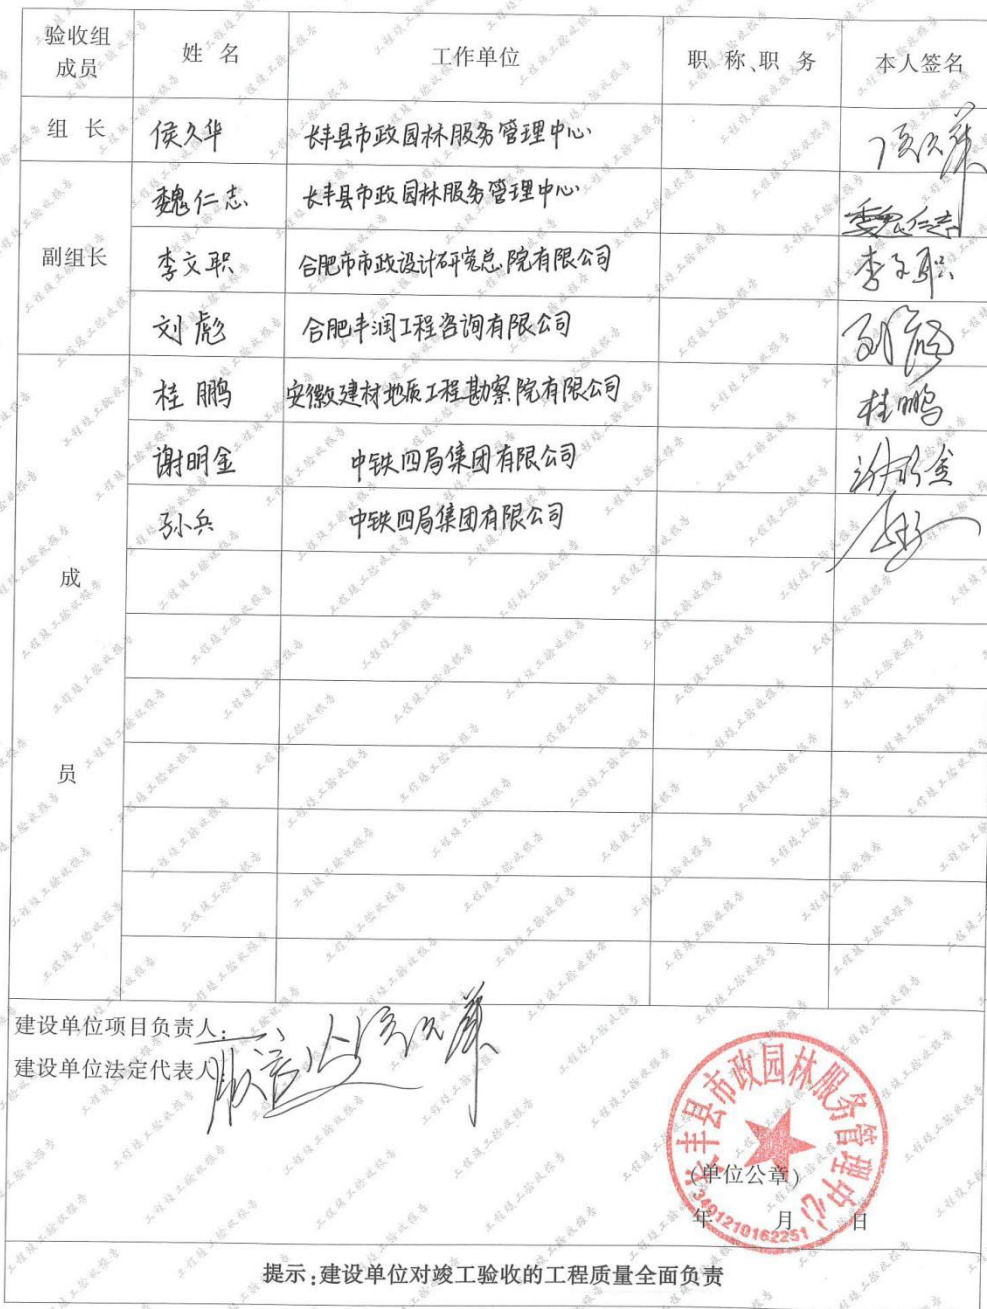 验收组成员 姓 名 工作单位 职 称、职 务 本人签名
组 长 侯久华 长丰县市政园林服务管理中心 侯久华
副组长 魏仁志 长丰县市政园林服务管理中心 魏仁志
李文职 合肥市市政设计研究总院有限公司 李文职
刘彪 合肥丰润工程咨询有限公司 刘彪
成员 桂鹏 安徽建材地质工程勘察院有限公司 桂鹏
谢明金 中铁四局集团有限公司 谢明金
孙兵 中铁四局集团有限公司
建设单位项目负责人: 侯久华
建设单位法定代表人:
长丰县市政园林服务管理中心
(单位公章)
年 月 日
3401210162251
提示:建设单位对竣工验收的工程质量全面负责
工程竣工验收报告